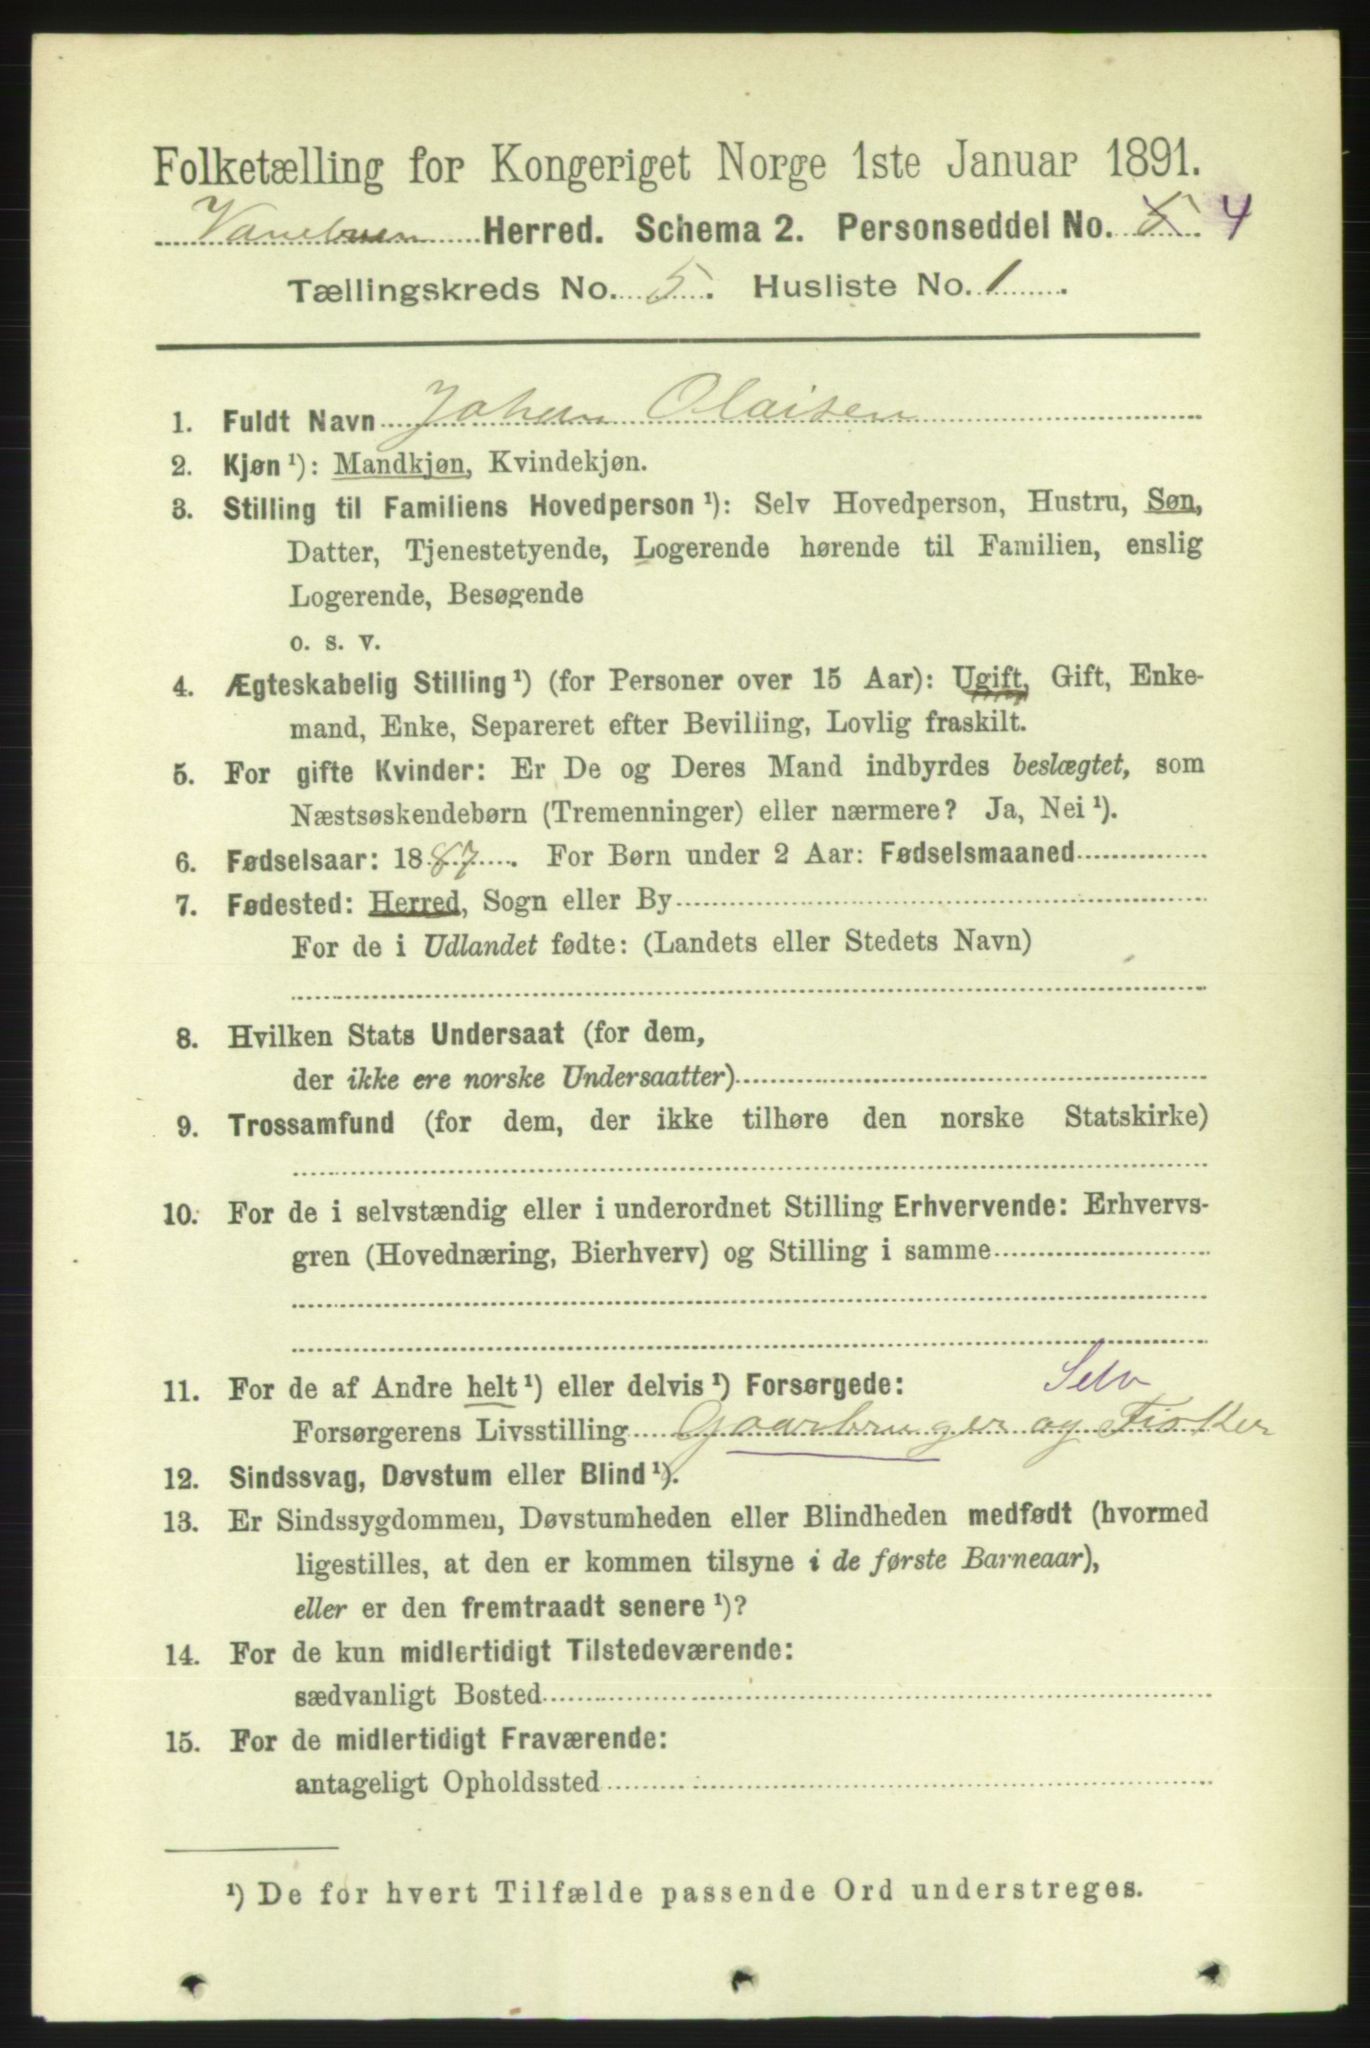 Folketælling for Kongeriget Norge 1ste Januar 1891.
Herred. Schema 2. Personseddel No. 5. 4
Tællingskreds No. 5. Husliste No. 1.
1. Fuldt Navn Johan Olaisen
2. Kjøn ¹): Mandkjøn, Kvindekjøn.
3. Stilling til Familiens Hovedperson ¹): Selv Hovedperson, Hustru, Søn,
Datter, Tjenestetyende, Logerende hørende til Familien, enslig
Logerende, Besøgende
o. s. v.
4. Ægteskabelig Stilling ¹) (for Personer over 15 Aar): Ugift, Gift, Enke-
mand, Enke, Separeret efter Bevilling, Lovlig fraskilt.
5. For gifte Kvinder: Er De og Deres Mand indbyrdes beslægtet, som
Næstsøskendebørn (Tremenninger) eller nærmere? Ja, Nei ¹).
6. Fødselsaar: 1887. For Børn under 2 Aar: Fødselsmaaned
7. Fødested: Herred, Sogn eller By
For de i Udlandet fødte: (Landets eller Stedets Navn)
8. Hvilken Stats Undersaat (for dem,
der ikke ere norske Undersaatter)
9. Trossamfund (for dem, der ikke tilhøre den norske Statskirke)
10. For de i selvstændig eller i underordnet Stilling Erhvervende: Erhvervs-
gren (Hovednæring, Bierhverv) og Stilling i samme
11. For de af Andre helt ¹) eller delvis ¹) Forsørgede: Selv
Forsørgerens Livsstilling Gaarbruger og Fisker
12. Sindssvag, Døvstum eller Blind ¹).
13. Er Sindssygdommen, Døvstumheden eller Blindheden medfødt (hvormed
ligestilles, at den er kommen tilsyne i de første Barneaar),
eller er den fremtraadt senere ¹)?
14. For de kun midlertidigt Tilstedeværende:
sædvanligt Bosted
15. For de midlertidigt Fraværende:
antageligt Opholdssted
¹) De for hvert Tilfælde passende Ord understreges.